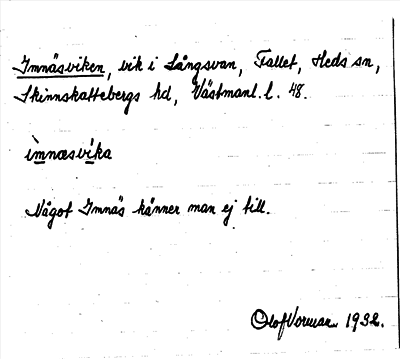 Imnäsviken, vik i Långsvan, Fallet, Heds sn,
Skinnskattebergs hd, Västmanl. l. 48.
ìmnæsvìka
Något Imnäs känner man ej till.
Olof Vorman 1932.